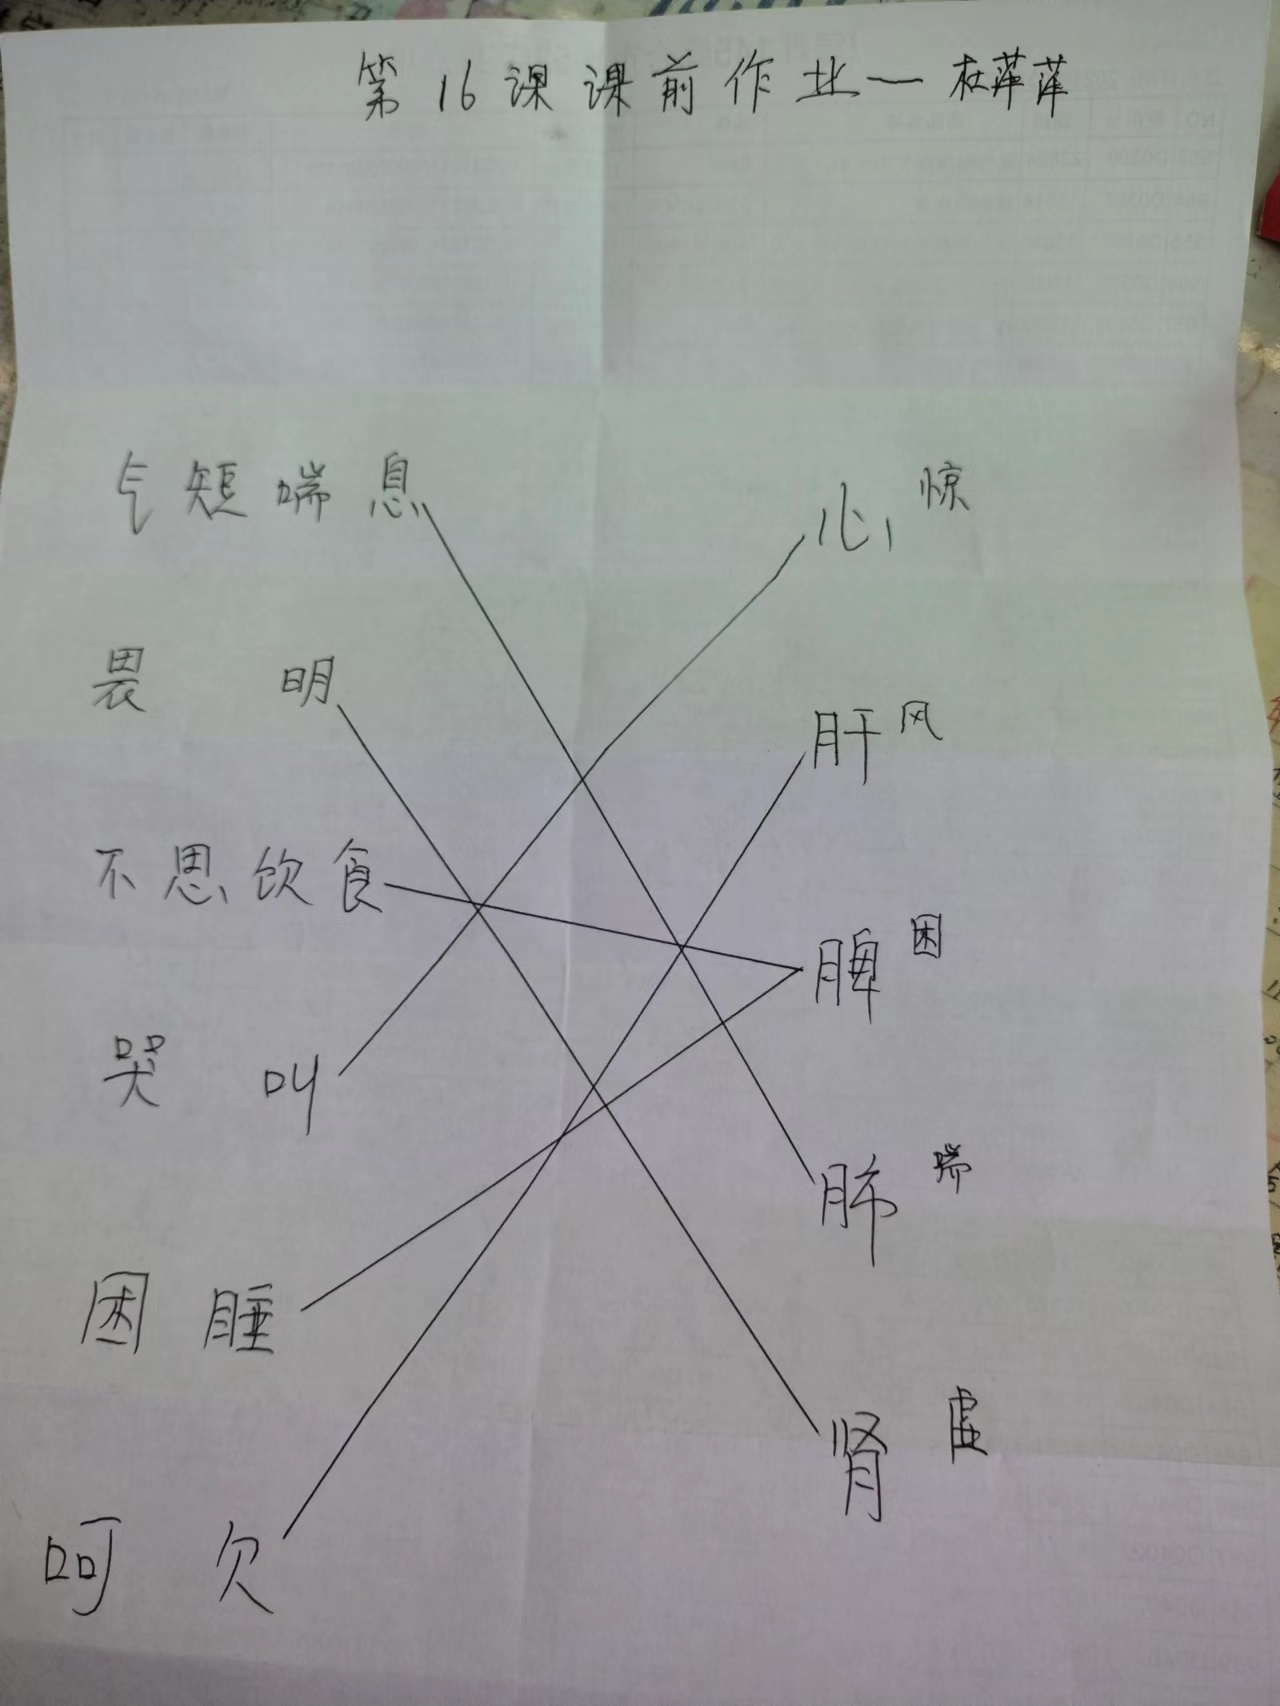 第16课课前作业一杜萍萍
气短喘息
心 惊
畏 明
肝 风
不思饮食
脾 困
哭 叫
肺 喘
困 睡
肾 虚
呵 欠